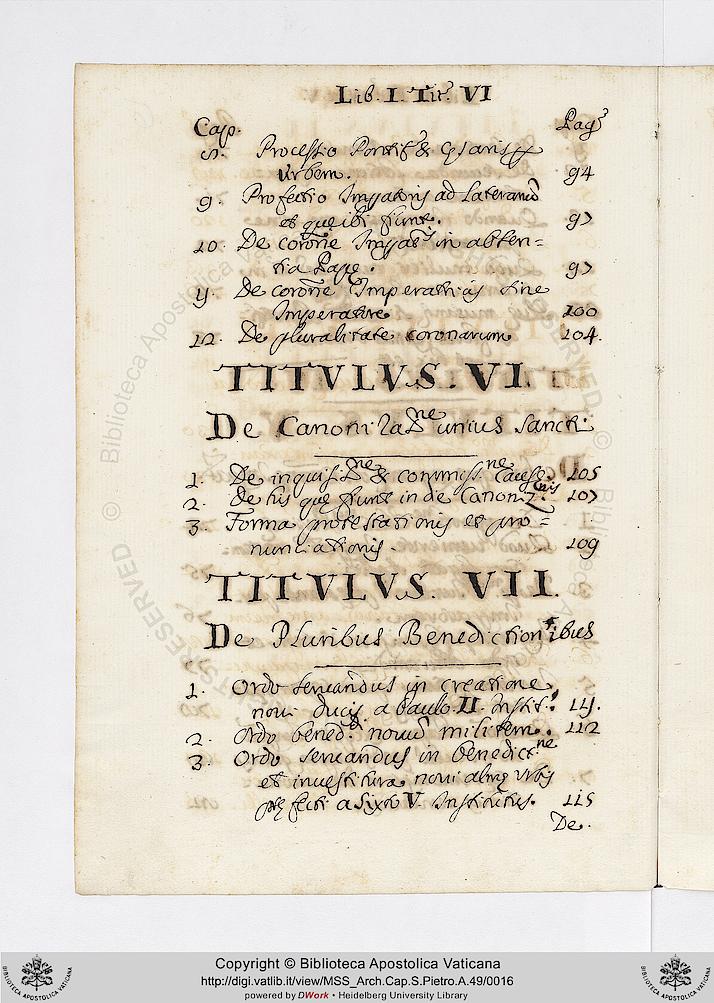 Lib. I. Tit. VI
Cap. Pag.
8. Processio Pontif. & Cęsaris p
Urbem. 94
9. Profectio Impratoris ad Lateranũ
et quę ibi fiunt. 97
10. De coroñe Impat. in absen=
tia Papę. 97
11. De coroñe Imperatricis sine
Imperatore. 100
12. De pluralitate coronarum 104.
TITULUS. VI.
De Canonizane unius Sancti
1. De inquisitne & commissne Causę. 105
2. De his quę fiunt in die Canonznis. 107
3. Forma protestationis et pro=
nunciationis. 109
TITULUS. VII.
De Pluribus Benedictionibus
1. Ordo servandus in creatione
novi Ducis a Paulo II. Instit. 111.
2. Ordo bened. novũ militem. 112
3. Ordo servandus in benedictne
et investitura novi almę Urbis
pręfecti a Sixto V. Institutus. 115
De.
RIGHTS RESERVED © Biblioteca Apostolica Vaticana
Copyright © Biblioteca Apostolica Vaticana
http://digi.vatlib.it/view/MSS_Arch.Cap.S.Pietro.A.49/0016
powered by DWork • Heidelberg University Library
BIBLIOTECA APOSTOLICA VATICANA
BIBLIOTECA APOSTOLICA VATICANA